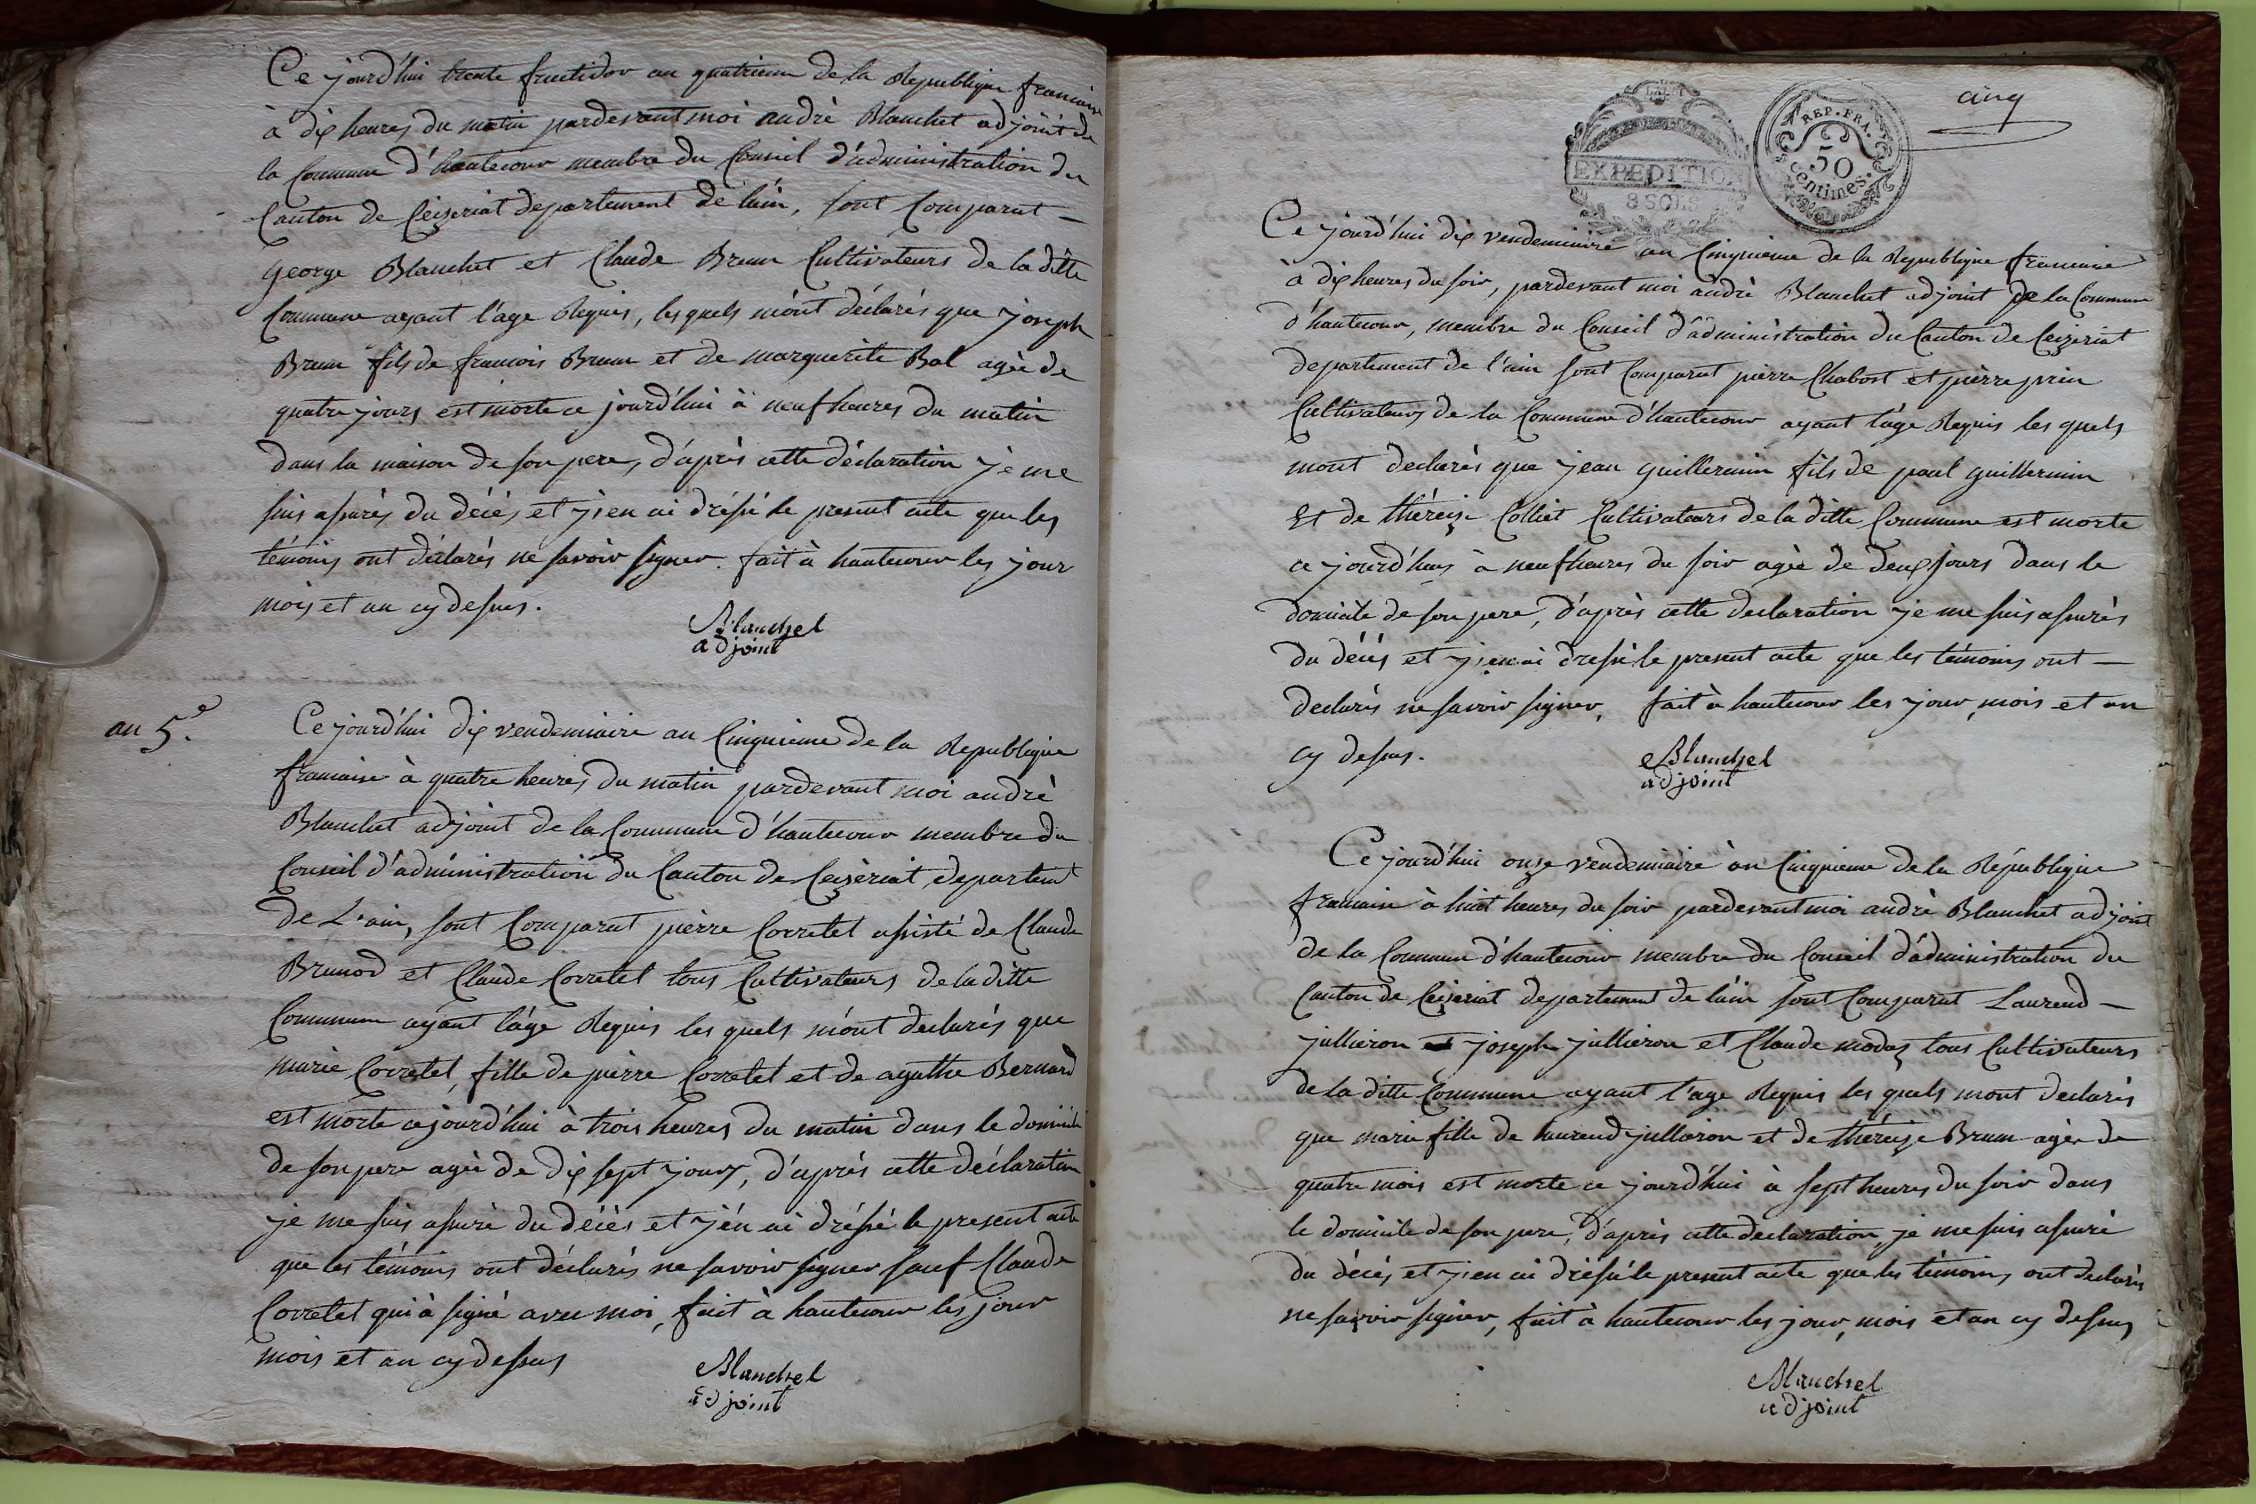 Ce jourd'hui trente fructidor an quatrieme de la Republique francaise
à dix heures du matin pardevant moi andrè Blanchet adjoint de
la Commune d'hautecour membre du Conseil d'administration du
Canton de Ceizeriat departement de l'ain, sont Comparut —
george Blanchet et Claude Brun Cultivateurs de la ditte
Commune ayant l'age Requis, les quels m'ont déclarés que joseph
Brun fils de francois Brun et de marguerite Bal agée de
quatre jours est morte ce jourd'hui à neuf heures du matin
dans la maison de son pere, d'après cette déclaration je me
suis assurés du décés et j'en ai dréssé le present acte que les
témoins ont déclarés ne savoir signer. fait à hautecour les jour
mois et an cy dessus.
Blanchet
adjoint
an 5.e
Ce jourd'hui dix vendemiaire an Cinquieme de la Republique
francaise à quatre heures du matin pardevant moi andrè
Blanchet adjoint de la Commune d'hautecour membre du
Conseil d'administration du Canton de Ceizèriat departemt
de L'ain, sont Comparut pièrre Corretet assisté de Claude
Brunod et Claude Corretet tous Cultivateurs de la ditte
Commune ayant l'age Requis les quels m'ont declarés que
marie Corretet, fille de pièrre Corretet et de agathe Bernard
est morte cejourd'hui à trois heures du matin dans le domicile
de son pere agée de dix sept jours, d'après cette déclaration
je me suis assuré du décès et j'én ai dréssé le present acte
que les témoins ont déclarés ne savoir signer sauf Claude
Corretet qui à signé avec moi, fait à hautecour les jour
mois et an cy dessus
Blanchet
adjoint
cinq
EXPEDITION
8 SOLS
REP. FRA.
50
centimes.
Ce jourd'hui dix vendemiaire an Cinquieme de la Republique francaise
à dix heures du soir, pardevant moi andrè Blanchet adjoint de la Commune
d'hautecour, membre du Conseil d'administration du Canton de Ceizeriat
departement de l'ain sont Comparut pièrre Chabost et pièrre prin
Cultivateurs de la Commune d'hautecour ayant l'age Requis les quels
mont declarés que jean guillermin fils de paul guillermin
Et de thérèize Colliet Cultivateurs de la ditte Commune est morte
ce jourd'huy à neuf heures du soir agée de deux jours dans le
domicile de son pere, d'après cette declaration je me suis assurés
du décés et j'en ai dressé le present acte que les témoins ont —
declarés ne savoir signer, fait à hautecour les jour, mois et an
cy dessus.
Blanchet
adjoint
Ce jourd'hui onze vendemiaire an Cinquieme de la République
francaise à huit heures du soir pardevant moi andrè Blanchet adjoint
de la Commune d'hautecour membre du Conseil d'administration du
Canton de Ceizeriat departement de l'ain sont Comparut Laurend —
jullieron joseph jullieron et Claude modas tous Cultivateurs
de la ditte Commune ayant l'age Requis les quels mont declarés
que marie fille de laurend jullieron et de thérèize Brun agée de
quatre mois est morte ce jourd'hui à sept heures du soir dans
le domicile de son pere, d'après cette declaration je me suis assuré
du décés et j'en ai dréssé le present acte que les témoins ont declarés
ne savoir signer, fait à hautecour les jour, mois et an cy dessus
Blanchet
adjoint